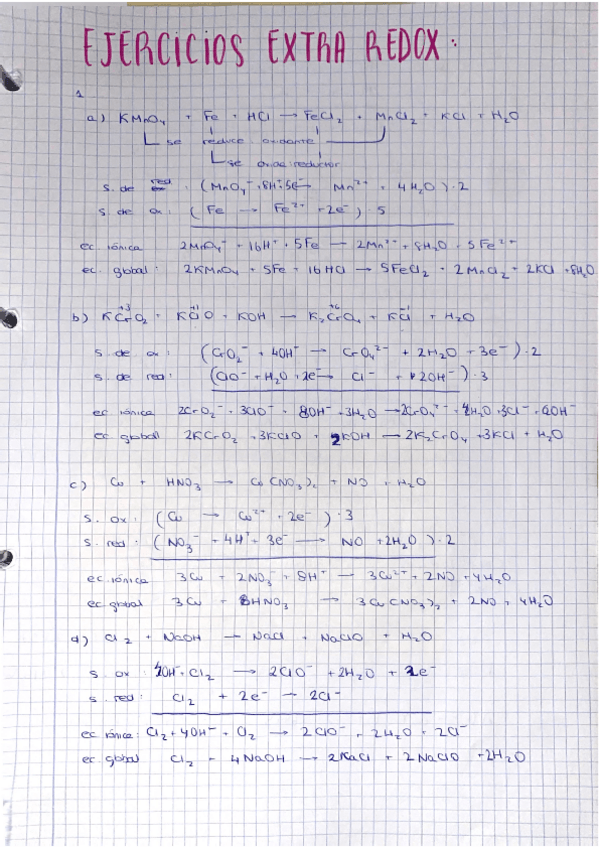 EJERCICIOS EXTRA REDOX:
1
a) KMnO₄ + Fe + HCl → FeCl₂ + MnCl₂ + KCl + H₂O
se reduce: oxidante
se oxida: reductor
s. de red : (MnO₄⁻ + 8H⁺ + 5e⁻ → Mn²⁺ + 4H₂O) · 2
s. de ox : (Fe → Fe²⁺ + 2e⁻) · 5
ec iónica 2MnO₄⁻ + 16H⁺ + 5Fe → 2Mn²⁺ + 8H₂O + 5Fe²⁺
ec. global : 2KMnO₄ + 5Fe + 16HCl → 5FeCl₂ + 2MnCl₂ + 2KCl + 8H₂O
b) KCrO₂ + KClO + KOH → K₂CrO₄ + KCl + H₂O
s. de ox : (CrO₂⁻ + 4OH⁻ → CrO₄²⁻ + 2H₂O + 3e⁻) · 2
s. de red : (ClO⁻ + H₂O + 2e⁻ → Cl⁻ + 2OH⁻) · 3
ec iónica 2CrO₂⁻ + 3ClO⁻ + 8OH⁻ + 3H₂O → 2CrO₄²⁻ + 4H₂O + 3Cl⁻ + 6OH⁻
ec global 2KCrO₂ + 3KClO + 2KOH → 2K₂CrO₄ + 3KCl + H₂O
c) Cu + HNO₃ → Cu(NO₃)₂ + NO + H₂O
s. ox : (Cu → Cu²⁺ + 2e⁻) · 3
s. red : (NO₃⁻ + 4H⁺ + 3e⁻ → NO + 2H₂O) · 2
ec. iónica 3Cu + 2NO₃⁻ + 8H⁺ → 3Cu²⁺ + 2NO + 4H₂O
ec. global 3Cu + 8HNO₃ → 3Cu(NO₃)₂ + 2NO + 4H₂O
d) Cl₂ + NaOH → NaCl + NaClO + H₂O
s. ox : 4OH⁻ + Cl₂ → 2ClO⁻ + 2H₂O + 2e⁻
s. red : Cl₂ + 2e⁻ → 2Cl⁻
ec iónica : Cl₂ + 4OH⁻ + O₂ → 2ClO⁻ + 2H₂O + 2Cl⁻
ec global Cl₂ + 4NaOH → 2NaCl + 2NaClO + 2H₂O